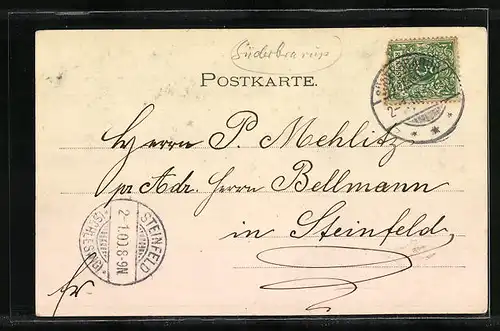 Süderbrarup
POSTKARTE.
Herrn P. Mehlitz
pr Adr. Herrn Bellmann
in Steinfeld
fr.
STEINFELD
2-1.00.8-9N
(SCHLESWIG)